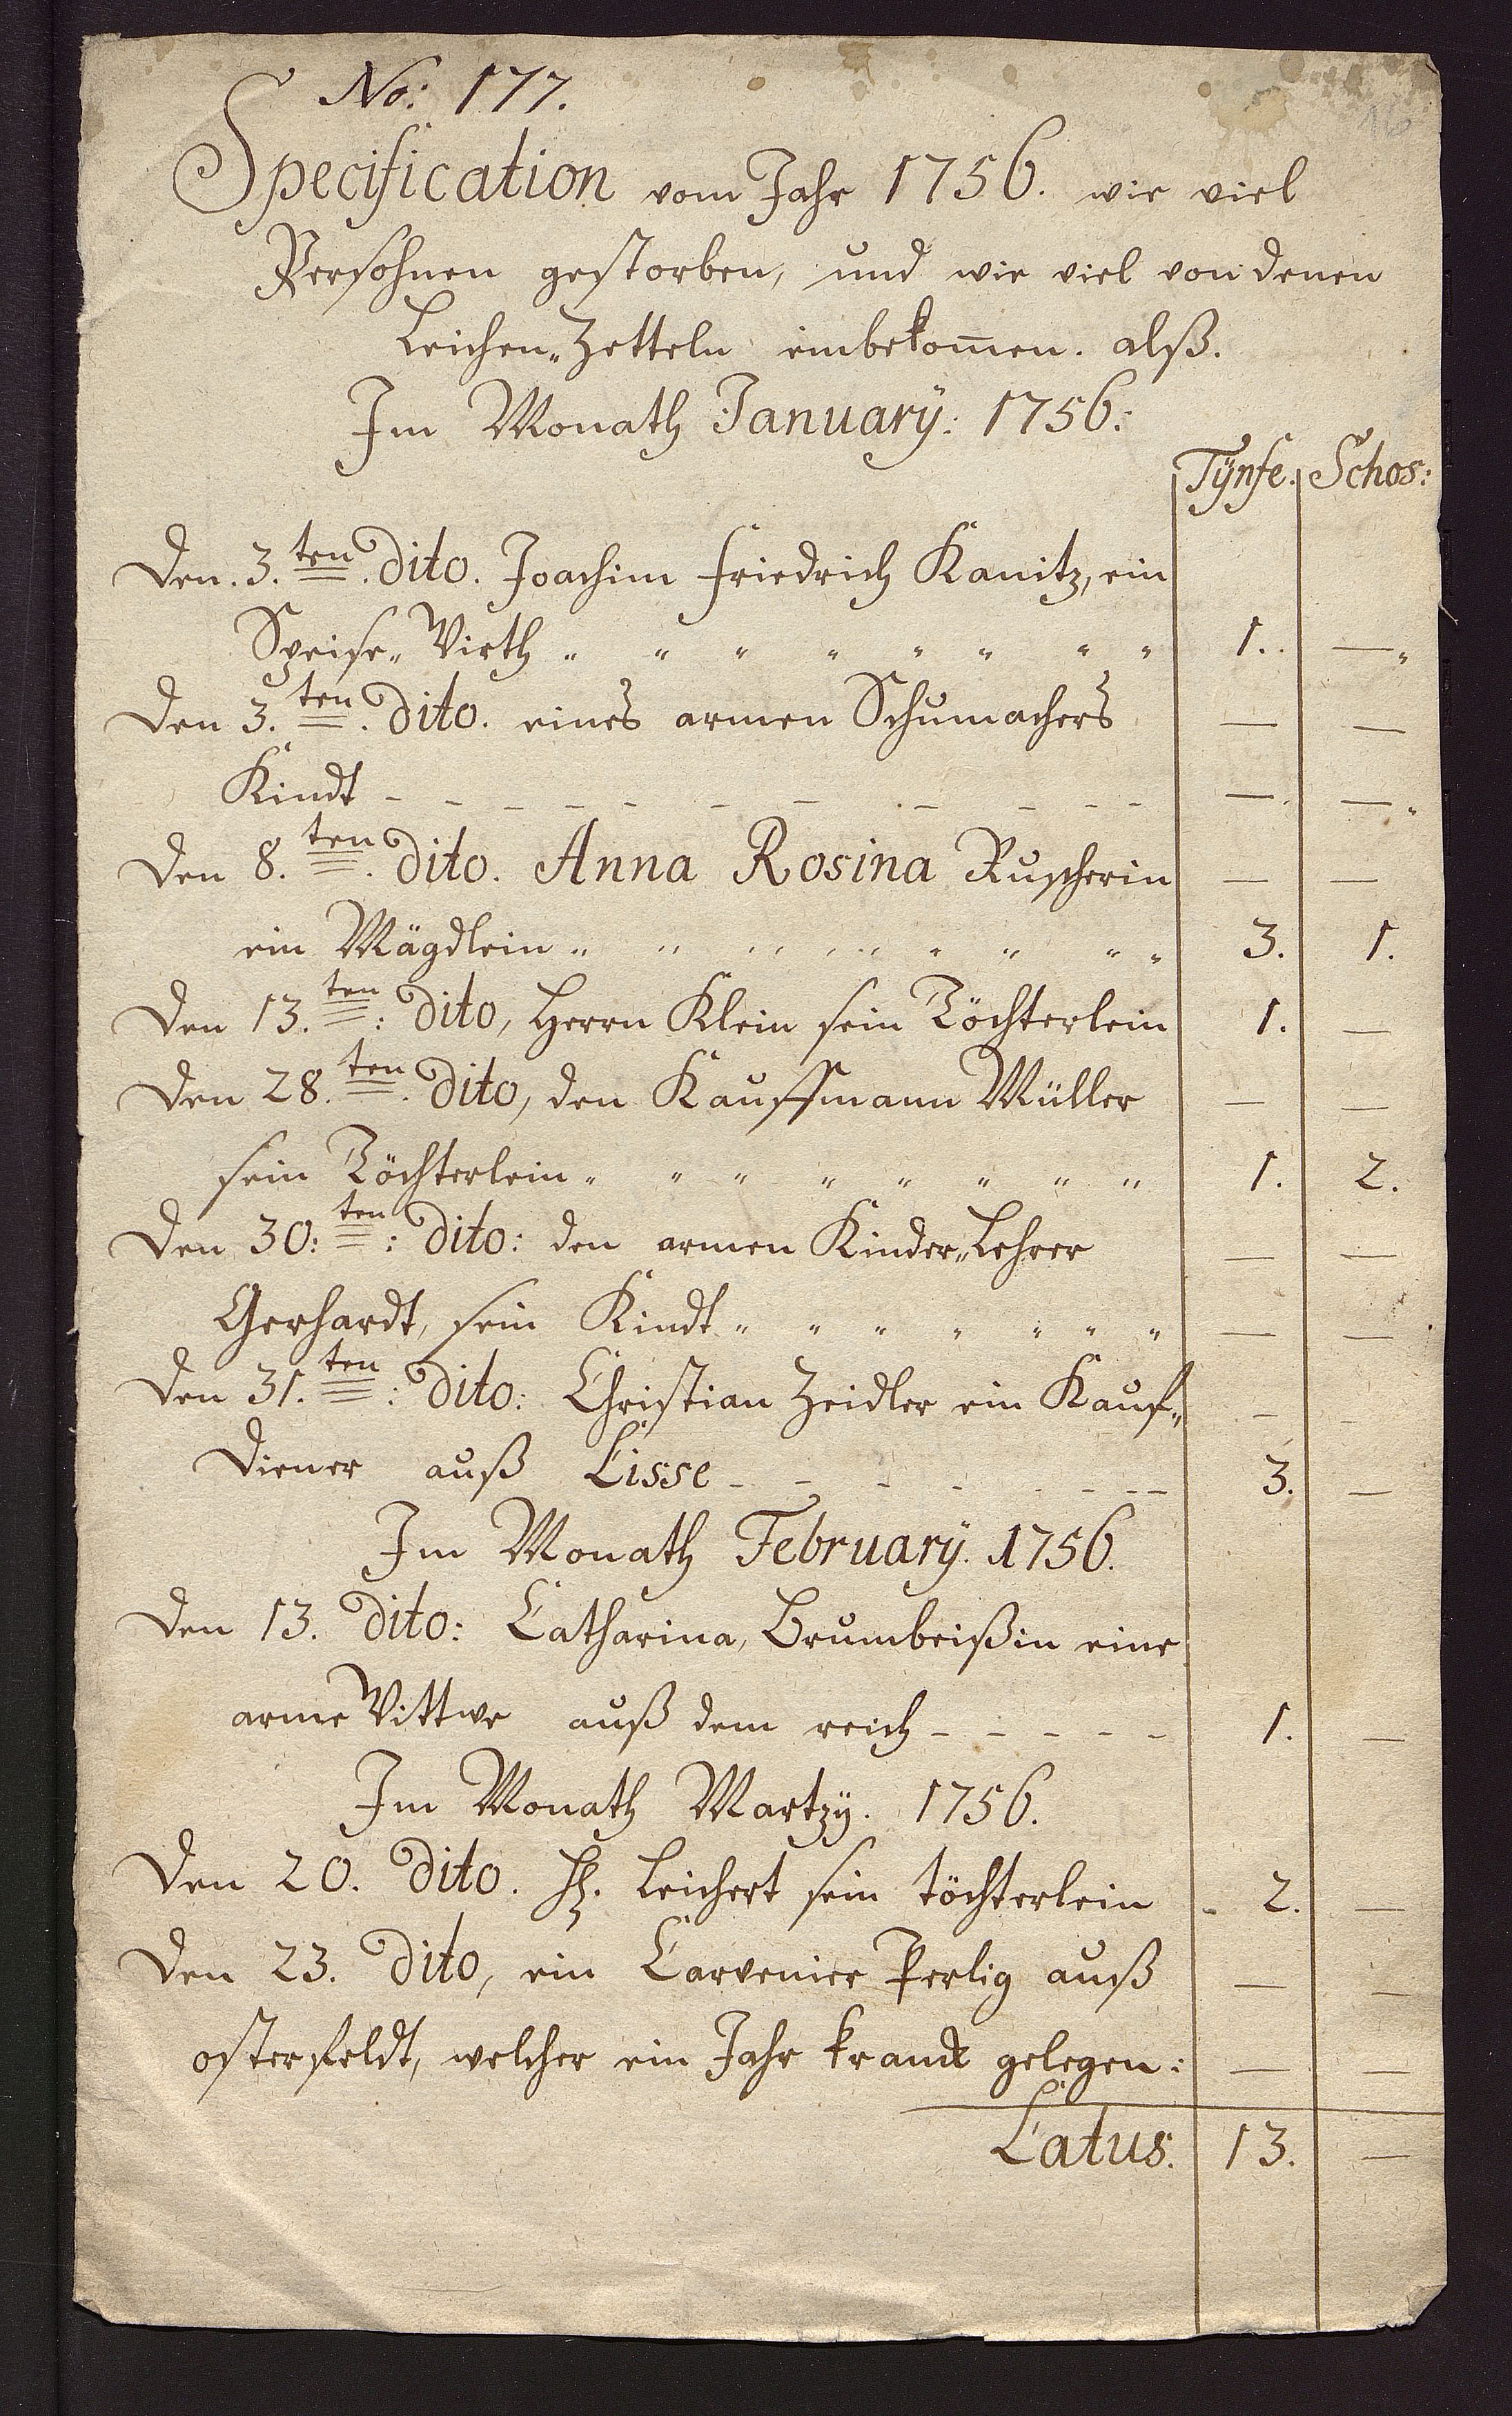 No: 177.
16
Specification vom Jahr 1756. wie viel
Persohnen gestorben, und wie viel von denen
Leichen„Zetteln einbekom̄en. alß.
Im Monath January: 1756:
Tÿnfe. Schos:
Den. 3.ten. dito. Joachim Friedrich Kanitz, ein
Speise„ Wirth „ „ „ „ „ „ „ „ 1. . —„
Den 3.ten. dito. eines armen Schumachers — —
Kindt - - - - - - - - - - - - —. —.
Den 8.ten. dito. Anna Rosina Ruscherin — —
ein Mägdlein „ „ „ „ „ „ „ „ „ 3. 1.
Den 13.ten: dito, Herrn Klein sein Töchterlein 1. —
Den 28.ten. dito, den Kauffmann Müller — —
sein Töchterlein „ „ „ „ „ „ „ „ 1. 2.
Den 30:ten: dito: den armen Kinder„Lehrer — —
Gerhardt, sein Kindt „ „ „ „ „ „ „ — —
Den 31.ten: dito: Christian Zeidler ein Kauf„ — —
Diener auß Lisse - - - - - - - - 3. —
Im Monath February. 1756.
Den 13. dito: Catharina, Brumbeißin eine
arme Wittwe auß dem reich - - - - - 1. —
Im Monath Martzy. 1756.
Den 20. dito. H. Leichert sein töchterlein - 2. —
Den 23. dito, ein Carvenier Perlig auß — —
osterfeldt, welcher ein Jahr kranck gelegen: — —
Latus. 13. —